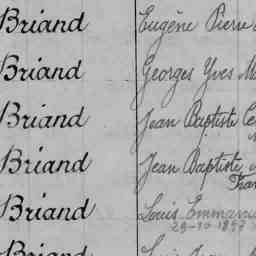 Briand Eugène Pierre
Briand Georges Yves
Briand Jean Baptiste
Briand Jean Baptiste
Briand Louis Emmanuel
29-10-1897
Briand